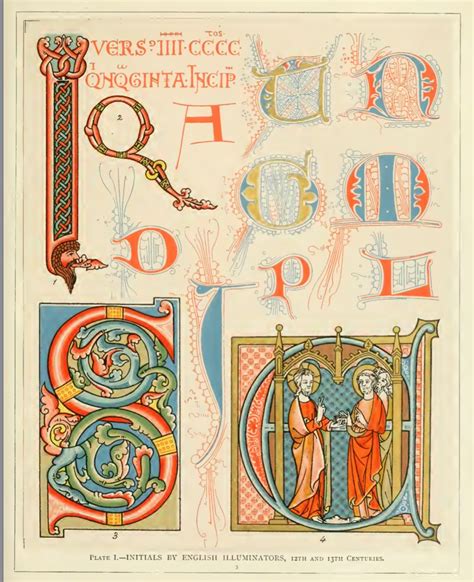 TOS
VERSꝯ IIII CCCC
QNQGINTA. INCIP
2
A
D
P
L
1
3
4
PLATE I.—INITIALS BY ENGLISH ILLUMINATORS, 12TH AND 13TH CENTURIES.